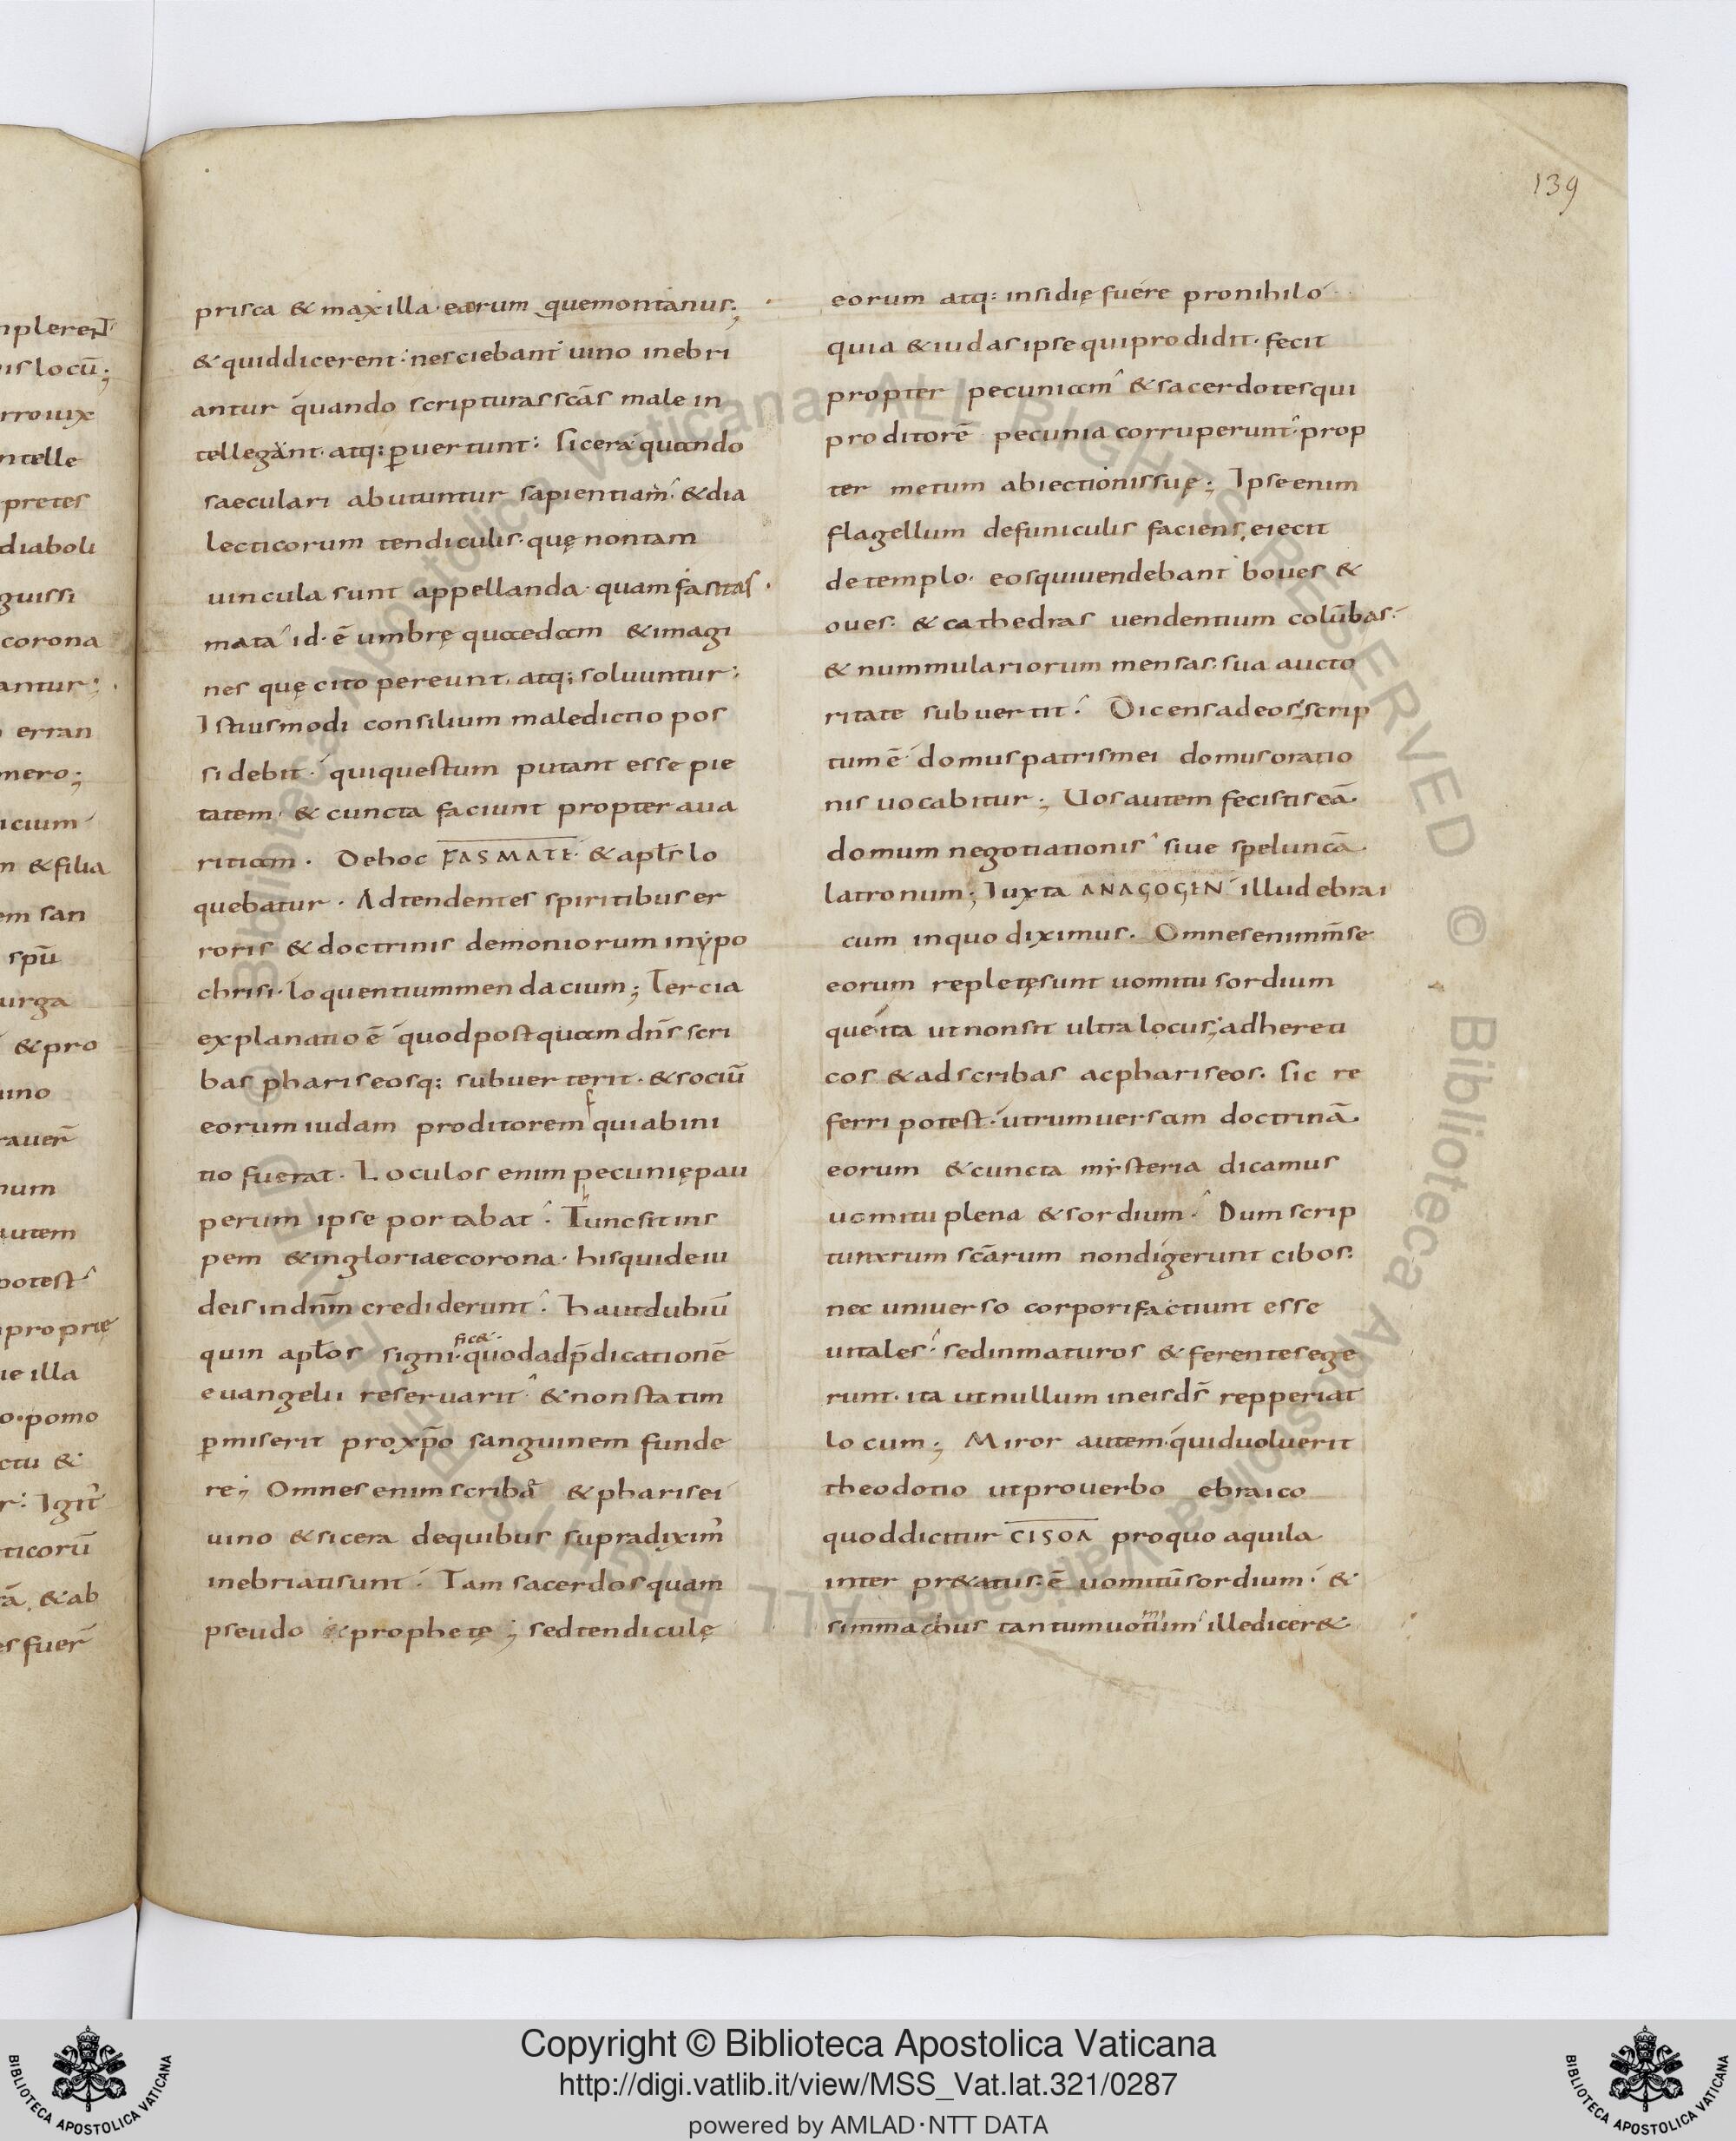 139
nplereNT
is locū;
rrouix
ntelle
pretes
diaboli
guissi
corona
antur;
erran
mero;
icium
m & filia
em san
spū
urga
& pro
uino
rauer̄
num
autem
potest
proprię
ue illa
o. pomo
ctu &
r: Igit᷒
ticorū
rā. & ab
es fuer̄
prisca & maxilla. earum quemontanus;
& quiddicerent. nesciebant uino inebri
antur quando scripturas scās male in
tellegant. atq: ꝑuertunt: sicera quando
saeculari abutuntur sapientiam. & dia
lecticorum tendiculis. quę nontam
uincula sunt appellanda. quam fantas
mata id. ē umbrę quaedam & imagi
nes quę cito pereunt. atq; soluuntur:
Istiusmodi consilium maledictio pos
sidebit. quiquestum putant esse pie
tatem. & cuncta faciunt propter aua
ritiam. Dehoc FASMATE. & apłs lo
quebatur. Adtendentes spiritibus er
roris & doctrinis demoniorum inypo
chrisi. loquentiummendacium; Tercia
explanatio ē quodpostquam dn̄s scri
bas phariseosq; subuerterit. & sociū
eorum iudam proditorem qui abini
tio fuerat. Loculos enim pecunię pau
perum ipse portabat. Tunc sit ins
pem & ingloriae corona. his quideiu
deis indn̄m crediderunt. haut dubiū
quin apłos significet. quodadp̄dicationē
euangelii reseruarit. & non statim
ꝑmiserit proxp̄o sanguinem funde
re; Omnes enim scribae & pharisei
uino & sicera dequibus supradixim᷒
inebriatisunt. Tam sacerdos quam
pseudo & prophetę; sedtendiculę
eorum atq: insidię fuere pronihilo
quia & iudas ipse quiprodidit. fecit
propter pecuniam & sacerdotes qui
proditorē pecunia corruperunt. prop
ter metum abiectionis suę; Ipse enim
flagellum defuniculis faciens, eiecit
detemplo. eosquiuendebant boues &
oues. & cathedras uendentium colūbas.
& nummulariorum mensas. sua aucto
ritate subuertit. Dicens adeos; scrip
tum ē domus patris mei domus oratio
nis uocabitur; Uos autem fecistis eā.
domum negotiationis siue speluncā.
latronum; Iuxta ANAGOGEN illud ebrai
cum inquo diximus. Omnes enim m̄se
eorum repletę sunt uomitu sordium
que ita utnonsit ultra locus; adhereti
cos & adscribas acphariseos. sic re
ferri potest. utrumuersam doctrinā.
eorum & cuncta mysteria dicamus
uomitu plena & sordium. Dum scrip
turarum scārum nondigerunt cibos.
nec uniuerso corporifactiunt esse
uitales. sedinmaturos & ferentes ege
runt. ita utnullum ineis ds̄ repperiat
locum; Miror autem. quiduoluerit
theodotio utprouerbo ebraico
quoddicitur CISOA proquo aquila
inter pr&atus. ē uomitū sordium. &
simmachus tantumuomitum ille dicer&
Copyright © Biblioteca Apostolica Vaticana
http://digi.vatlib.it/view/MSS_Vat.lat.321/0287
powered by AMLAD·NTT DATA
BIBLIOTECA APOSTOLICA VATICANA
BIBLIOTECA APOSTOLICA VATICANA